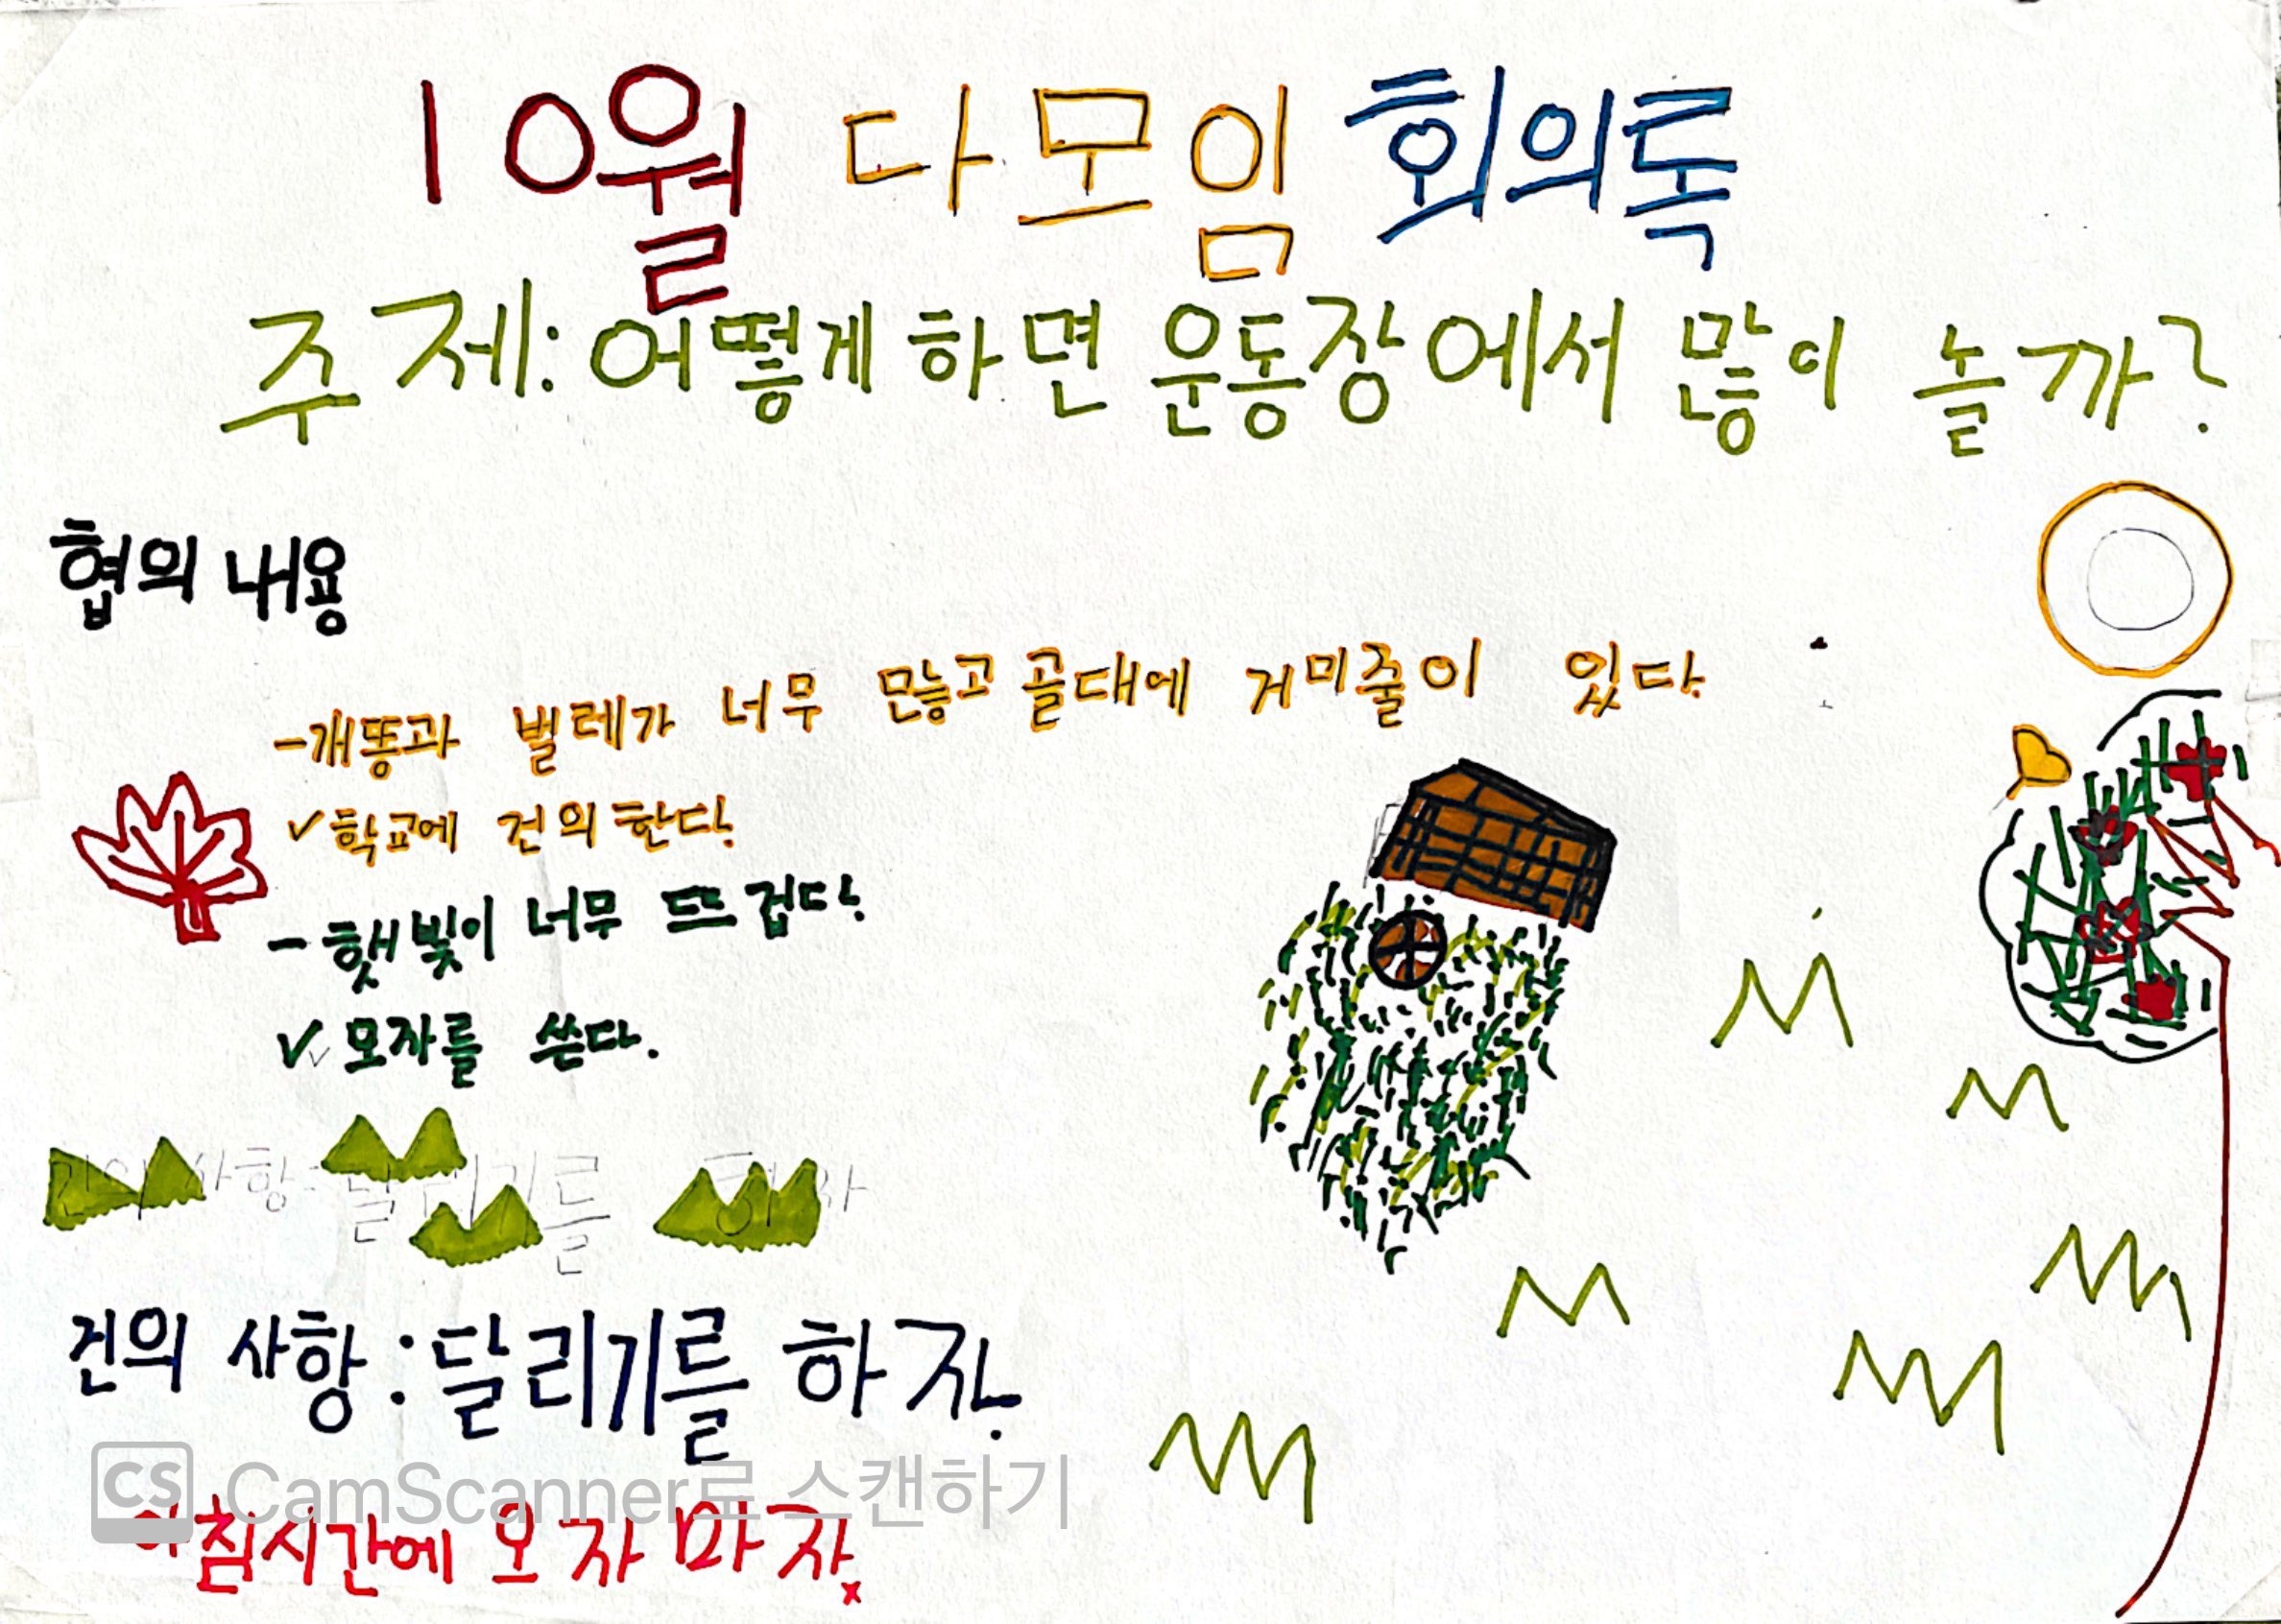 10월 다모임 회의록
주제: 어떻게 하면 운동장에서 많이 놀까?
협의 내용
-개똥과 벌레가 너무 많고 골대에 거미줄이 있다.
✓학교에 건의한다.
-햇빛이 너무 뜨겁다.
✓모자를 쓴다.
건의 사항 : 달리기를 하자.
CS CamScanner로 스캔하기
아침시간에 오자마자